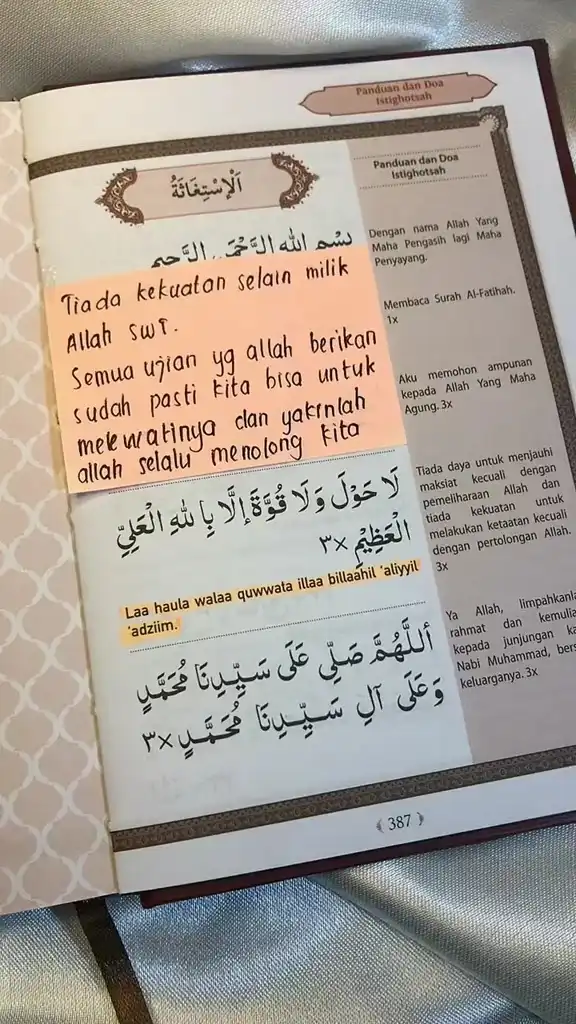 Panduan dan Doa
Istighotsah
اَلْاِسْتِغَاثَةُ
بِسْمِ اللهِ الرَّحْمَنِ الرَّحِيمِ
Tiada kekuatan selain milik
Allah swt.
Semua ujian yg allah berikan
sudah pasti kita bisa untuk
melewatinya dan yakinlah
allah selalu menolong kita
لَا حَوْلَ وَلَا قُوَّةَ إِلَّا بِاللهِ الْعَلِيِّ
الْعَظِيْمِ ×٣
Laa haula walaa quwwata illaa billaahil 'aliyyil
'adziim.
أَللَّهُمَّ صَلِّى عَلَى سَيِّدِنَا مُحَمَّدٍ
وَعَلَى آلِ سَيِّدِنَا مُحَمَّدٍ ×٣
Panduan dan Doa
Istighotsah
Dengan nama Allah Yang
Maha Pengasih lagi Maha
Penyayang.
Membaca Surah Al-Fatihah.
1x
Aku memohon ampunan
kepada Allah Yang Maha
Agung. 3x
Tiada daya untuk menjauhi
maksiat kecuali dengan
pemeliharaan Allah dan
tiada kekuatan untuk
melakukan ketaatan kecuali
dengan pertolongan Allah.
3x
Ya Allah, limpahkanla
rahmat dan kemulia
kepada junjungan ka
Nabi Muhammad, bers
keluarganya. 3x
387